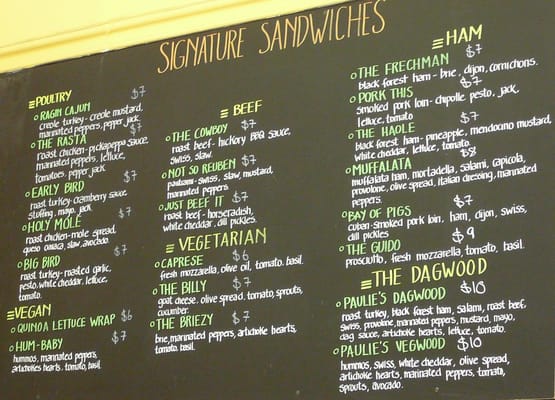 SIGNATURE SANDWICHES
POULTRY $7
RAGIN CAJUN
creole turkey - creole mustard,
marinated peppers, pepper jack.
THE RASTA $7
roast chicken - pickapeppa sauce,
marinated peppers, lettuce,
tomatoes, pepper jack.
EARLY BIRD $7
roast turkey - cranberry sauce,
stuffing, mayo, jack
HOLY MOLÉ $7
roast chicken - mole spread,
queso oaxaca, slaw, avocado.
BIG BIRD $7
roast turkey - roasted garlic,
pesto, white cheddar, lettuce,
tomato.
VEGAN
QUINOA LETTUCE WRAP $6
HUM-BABY $7
hummos, marinated peppers,
artichokes hearts. tomato, basil.
BEEF
THE COWBOY $7
roast beef - hickory BBQ sauce,
swiss, slaw.
NOT SO REUBEN $7
pastrami - swiss, slaw, mustard,
marinated peppers
JUST BEEF IT $7
roast beef - horseradish,
white cheddar, dill pickles.
VEGETARIAN
CAPRESE $6
fresh mozzarella, olive oil, tomato. basil.
THE BILLY $7
goat cheese, olive spread, tomato, sprouts,
cucumber.
THE BRIEZY $7
brie, marinated peppers, artichoke hearts,
tomato. basil.
HAM
THE FRECHMAN $7
black forest ham - brie, dijon, cornichons.
PORK THIS $7
smoked pork loin - chipotle pesto, jack,
lettuce, tomato
THE HAOLE $7
black forest ham - pineapple, mendocino mustard,
white cheddar, lettuce, tomato.
MUFFALATA $8
muffalata ham, mortadella, salami, capicola,
provolone, olive spread, italian dressing, marinated
peppers.
BAY OF PIGS $7
cuban - smoked pork loin, ham, dijon, swiss,
dill pickles
THE GUIDO $9
prosciutto, fresh mozzarella, tomato, basil.
THE DAGWOOD
PAULIE'S DAGWOOD $10
roast turkey, black forest ham, salami, roast beef,
swiss, provolone, marinated peppers, mustard, mayo,
dag sauce, artichoke hearts, lettuce, tomato.
PAULIE'S VEGWOOD $10
hummos, swiss, white cheddar, olive spread,
artichoke hearts, marinated peppers, tomato,
sprouts, avocado.